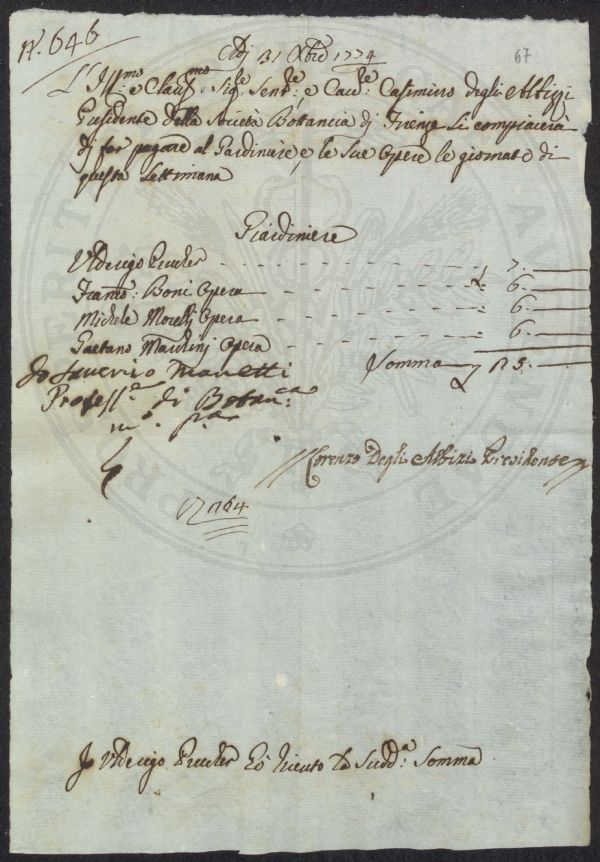 N.º 646
Adj 31 Xbre 1774
67
L'Ill:mo e Clariss:mo Sig:re Sen:re, e Cav:re Casimirro degli Albizzi
Presidente della Società Bottanica dj Firenze Si compiacerà
dj far pagare al Giardiniere, e le Sue Opere le giornate di
questa Settimana
Giardiniere
Ulderigo Prucker - - - - - 7. —
Franco: Boni Opera - - - - 6. —
Michele Morelli Opera - - - 6. —
Gaetano Marchinj Opera - - - 6. —
Somma 25. —
Io Saverio Manetti
Profess:re di Botan:ca
m:o p:a
Lorenzo Degli Albizi Presidente
1764
Io Ulderigo Prucker hò riceuto la Sudd:a Somma